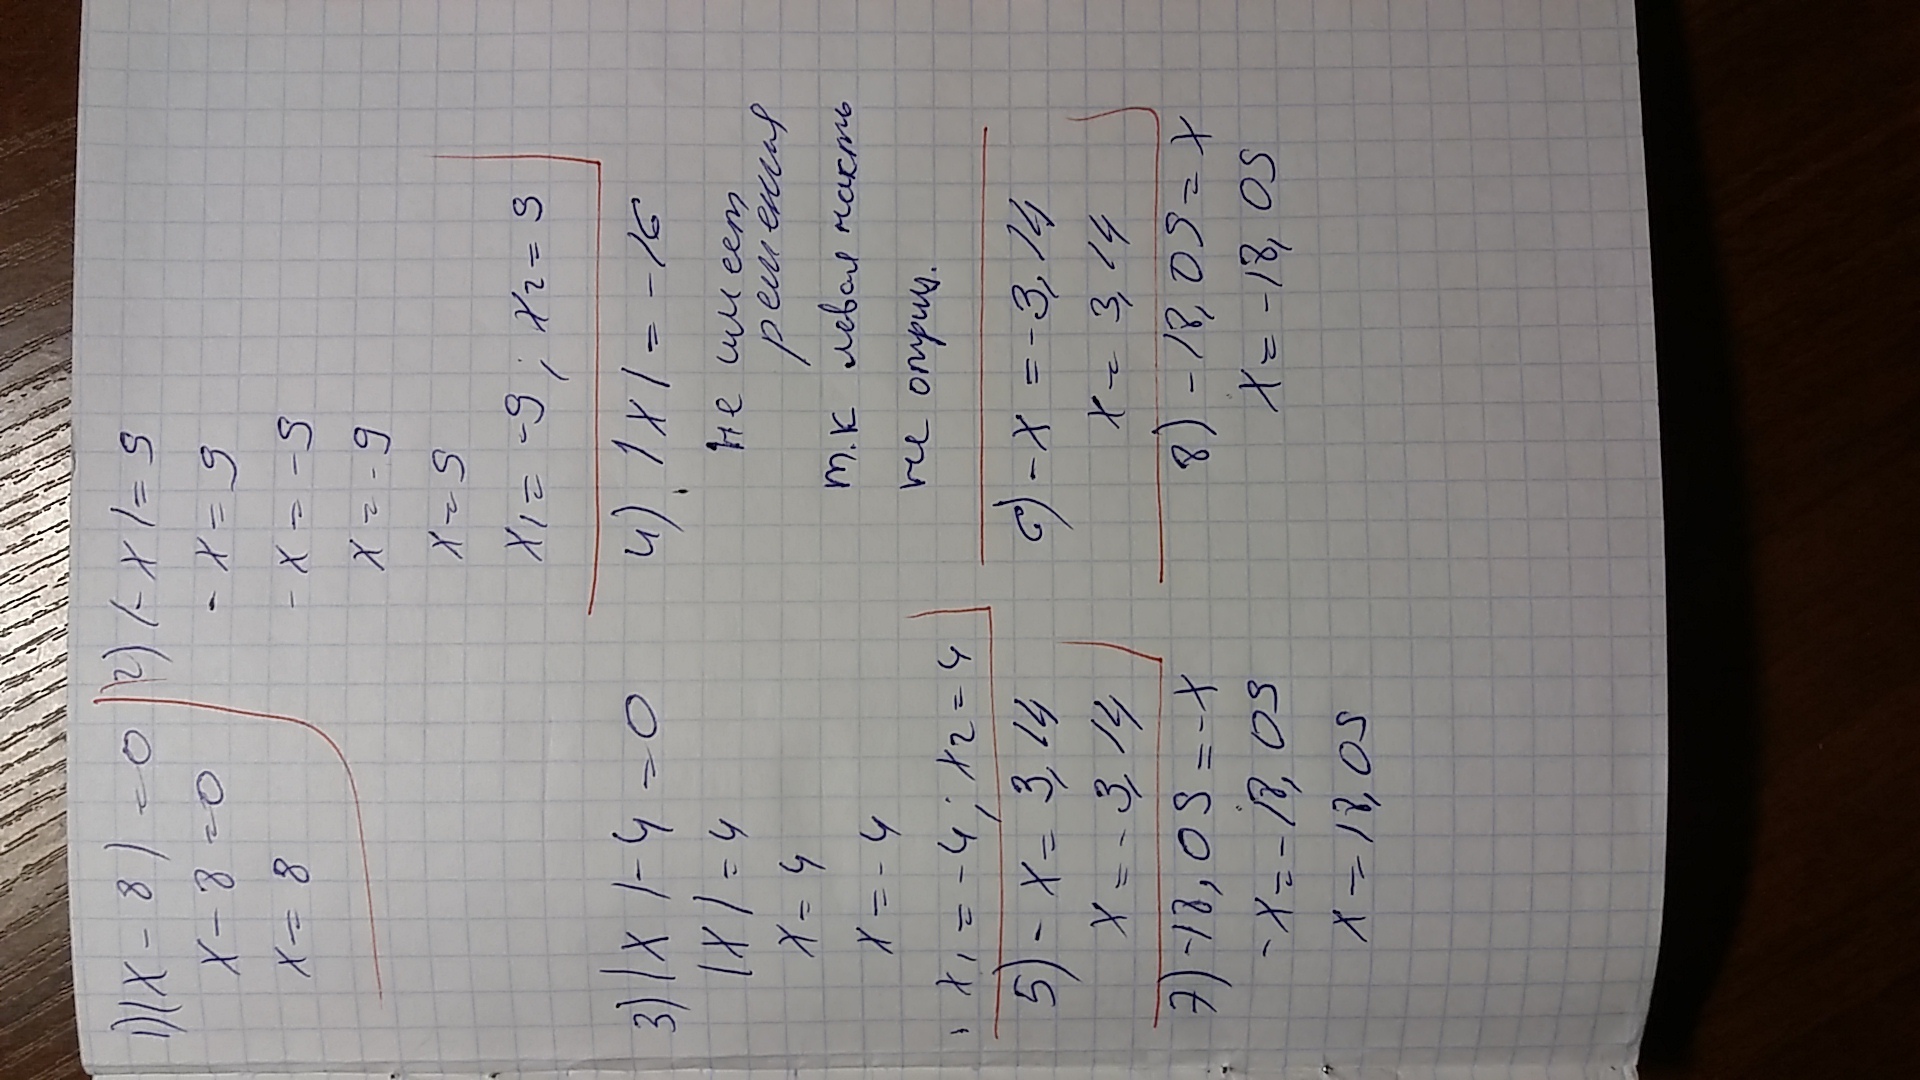 1) |x-8|=0
x-8=0
x=8
2) |-x|=9
-x=9
-x=-9
x=-9
x=9
x1=-9; x2=9
3) |x|-4=0
|x|=4
x=4
x=-4
x1=-4; x2=4
4) |x|=-16
Не имеет
решения
т.к левая часть
не отриц.
5) -x=3,14
x=-3,14
6) -x=-3,14
x=3,14
7) -18,09=-x
-x=-18,09
x=18,09
8) -18,09=x
x=-18,09